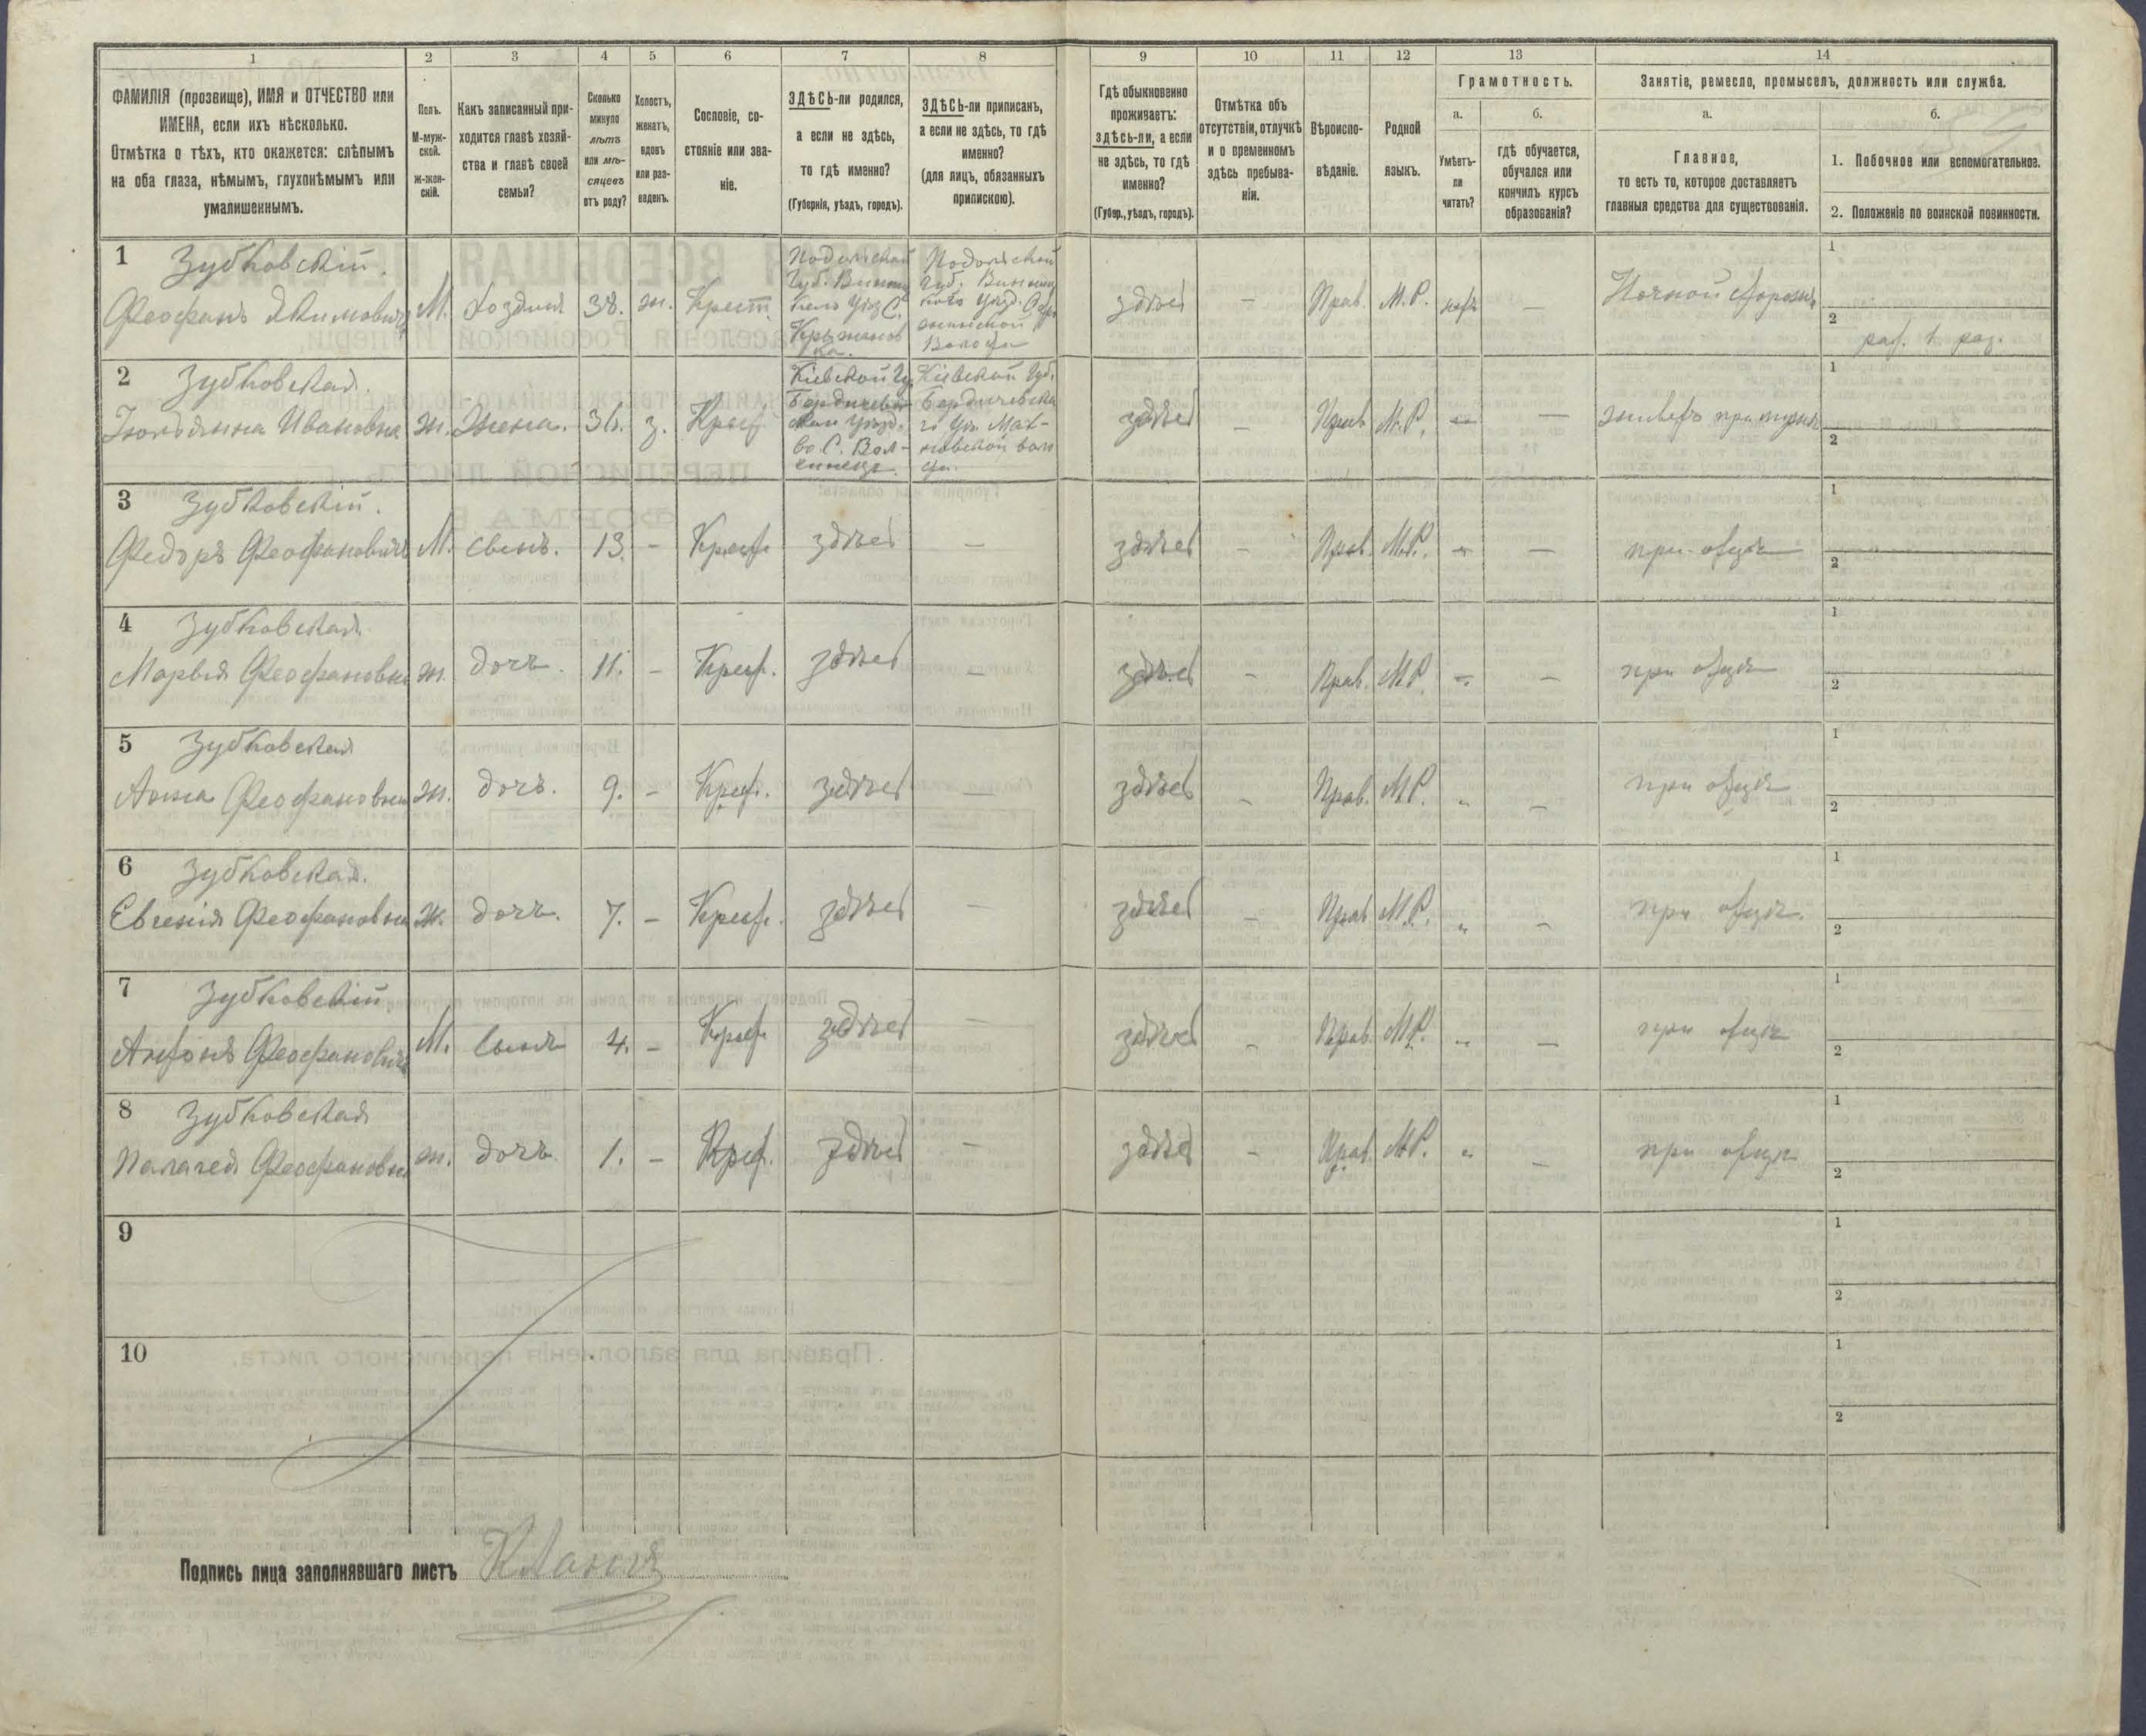 1
2
3
4
5
6
7
8
9
10
11
12
13
14
ФАМИЛІЯ (прозвище), ИМЯ и ОТЧЕСТВО или
ИМЕНА, если ихъ нѣсколько.
Отмѣтка о тѣхъ, кто окажется: слѣпымъ
на оба глаза, нѣмымъ, глухонѣмымъ или
умалишеннымъ.
Полъ.
М-муж-
ской.
Ж-жен-
скій.
Какъ записанный при-
ходится главѣ хозяй-
ства и главѣ своей
семьи?
Сколько
минуло
лѣтъ
или мѣ-
сяцевъ
отъ роду?
Холостъ,
женатъ,
вдовъ
или раз-
веденъ.
Сословіе, со-
стояніе или зва-
ніе.
ЗДѢСЬ-ли родился,
а если не здѣсь,
то гдѣ именно?
(Губернія, уѣздъ, городъ).
ЗДѢСЬ-ли приписанъ,
а если не здѣсь, то гдѣ
именно?
(для лицъ, обязанныхъ
припискою).
Гдѣ обыкновенно
проживаетъ:
здѣсь-ли, а если
не здѣсь, то гдѣ
именно?
(Губер., уѣздъ, городъ).
Отмѣтка объ
отсутствіи, отлучкѣ
и о временномъ
здѣсь пребыва-
ніи.
Вѣроиспо-
вѣданіе.
Родной
языкъ.
Грамотность.
а.
Умѣетъ-
ли
читать?
б.
гдѣ обучается,
обучался или
кончилъ курсъ
образованія?
Занятіе, ремесло, промыселъ, должность или служба.
а.
Главное,
то есть то, которое доставляетъ
главныя средства для существованія.
б.
1. Побочное или вспомогательное.
2. Положеніе по воинской повинности.
1 Зубковскій.
Феофанъ Якимовичъ М. Хозяинъ 38. ж. Крест.
Подольской
Губ. Винниц
каго Уѣз С.
Крыжанов
ка.
Подольской
Губ. Винниц
каго Уѣзд.
Волости
здѣсь – Прав. М.Р. нѣтъ – Ночной сторожъ
1
2 раб. 1 раз.
2 Зубковская.
Ивановна ж. Жена. 36. з. Крест
Кіевской Гу.
Бердичев
скаго Уѣзд.
во С.
Кіевской Губ.
Бердичевска
го Уѣз. Мах-
новской воло
сти.
здѣсь – Прав М.Р. – – живетъ при мужѣ
1
2
3 Зубковскій.
Федоръ Феофановичъ М. сынъ. 13. – Крест. здѣсь – здѣсь – Прав. М.Р. – – при отцѣ
1
2
4 Зубковская.
Марья Феофановна ж. дочь. 11. – Крест. здѣсь – здѣсь – Прав. М.Р. – – при отцѣ
1
2
5 Зубковская
Анна Феофановна ж. дочь. 9. – Крест. здѣсь – здѣсь – Прав. М.Р. „ – при отцѣ
1
2
6 Зубковская.
Евгенія Феофановна ж. дочь. 7. – Крест. здѣсь – здѣсь – Прав М.Р. „ – при отцѣ.
1
2
7 Зубковскій
Антонъ Феофановичъ М. Сынъ 4. – Крест здѣсь – здѣсь – Прав. М.Р. „ – при отцѣ
1
2
8 Зубковская
Палагея Феофановна ж. дочь. 1. – Крест. здѣсь – здѣсь – Прав. М.Р. „ – при отцѣ
1
2
9
1
2
10
1
2
Подпись лица заполнявшаго листъ